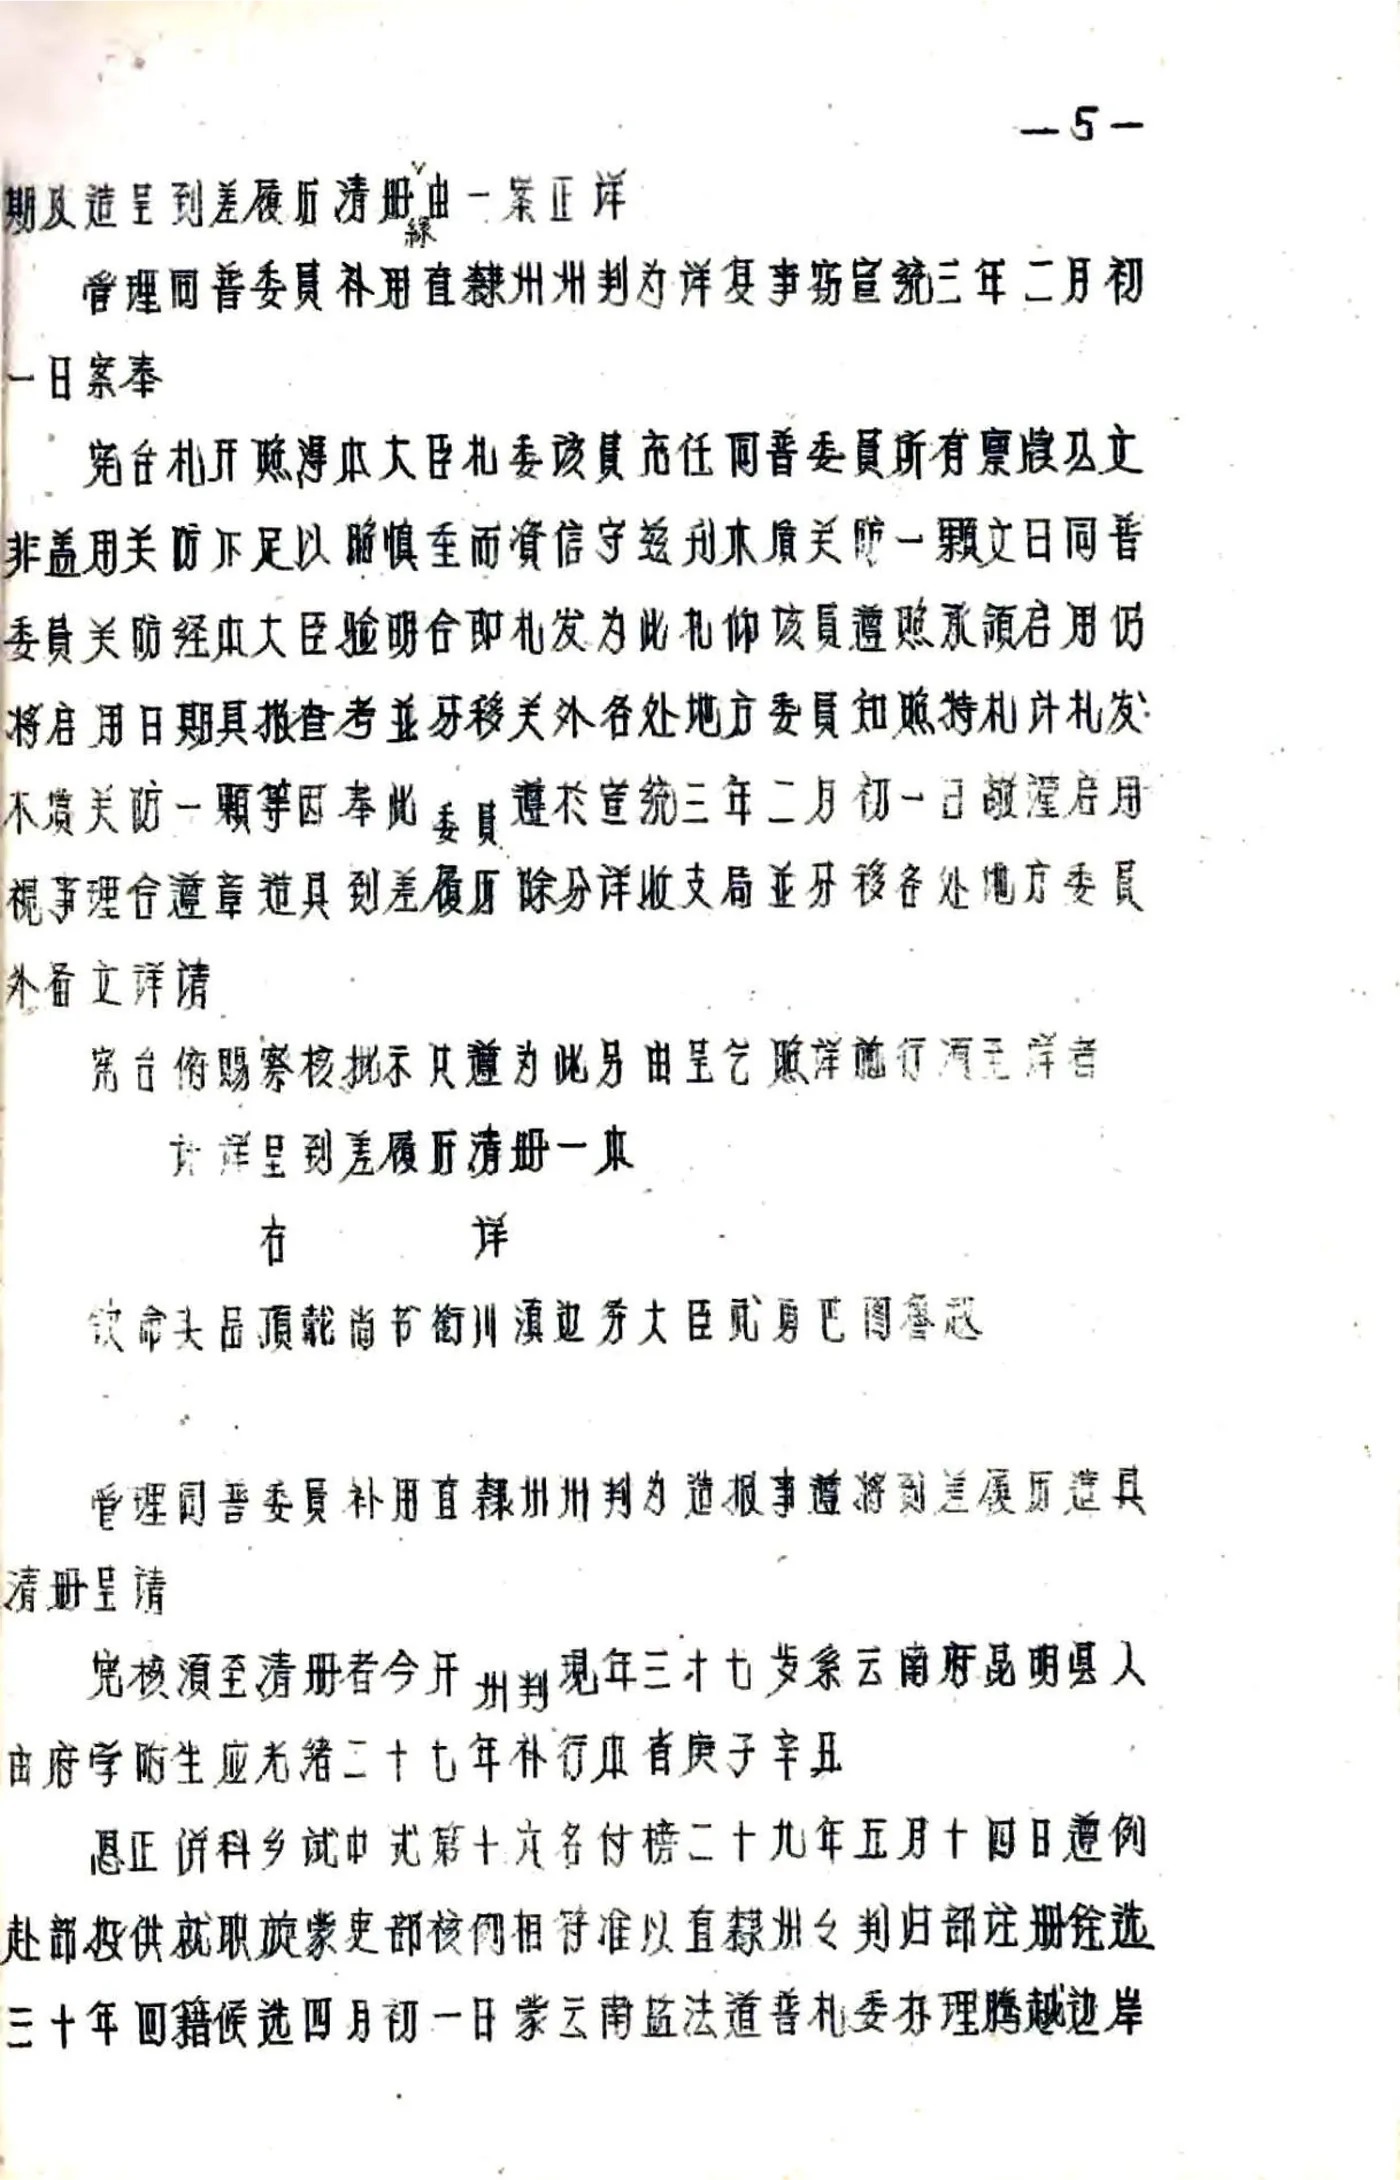 —5—
期及造呈到差履历清册缘由一案正详
管理同普委員补用直隸州州判为详复事窃宣统三年二月初
一日案奉
宪台札开照得本大臣札委该員充任同普委員所有禀牍公文
非盖用关防不足以昭慎重而資信守兹刊木质关防一颗文曰同普
委員关防经本大臣验明合即札发为此札仰该員遵照承领启用仍
将启用日期具报查考並牙移关外各处地方委員知照特札计札发
木质关防一颗等因奉此委員遵於宣统三年二月初一日敬谨启用
視事理合遵章造具到差履历除分详收支局並牙移各处地方委員
外备文详请
宪台俯赐察核批示只遵为此另由呈乞照详施行须至详者
计详呈到差履历清册一本
右 详
钦命头品頂戴尚书衔川滇边务大臣武勇巴图鲁赵
管理同普委員补用直隸州州判为造报事遵将到差履历造具
清册呈请
宪核須至清册者今开州判現年三十七岁系云南府昆明县人
由府学附生应光绪二十七年补行本省庚子辛丑
恩正併科乡试中式第十六名付榜二十九年五月十四日遵例
赴部投供就职旋蒙吏部核例相符准以直隸州州判归部注册铨选
三十年回籍候选四月初一日蒙云南盐法道普札委办理腾越边岸